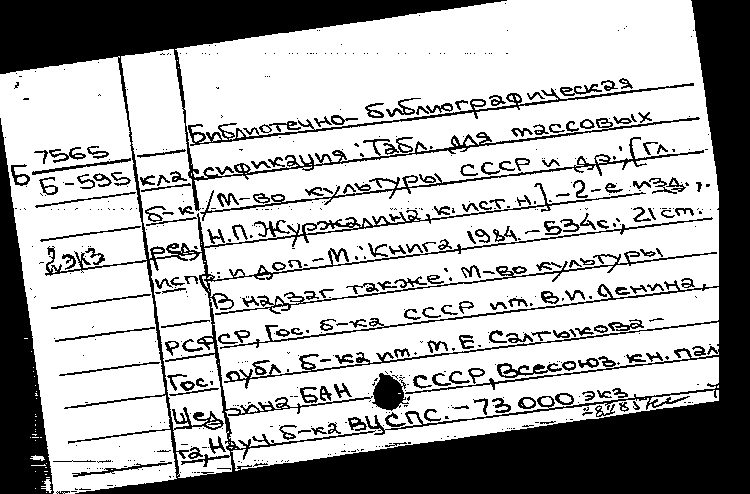 Библиотечно-библиографическая
Б 7565
Б-595 классификация: Табл. для массовых
б-к / М-во культуры СССР и др.; [Гл.
2экз
ред. Н.П. Журжалина, к. ист. н.]. - 2-е изд.,
испр. и доп. - М.: Книга, 1984. - 534с.; 21 см.
В надзаг также: М-во культуры
РСФСР, Гос. б-ка СССР им. В.И. Ленина,
Гос. публ. б-ка им. М.Е. Салтыкова-
Щедрина, БАН СССР, Всесоюз. кн. пала
та, Науч. б-ка ВЦСПС. - 73000 экз.